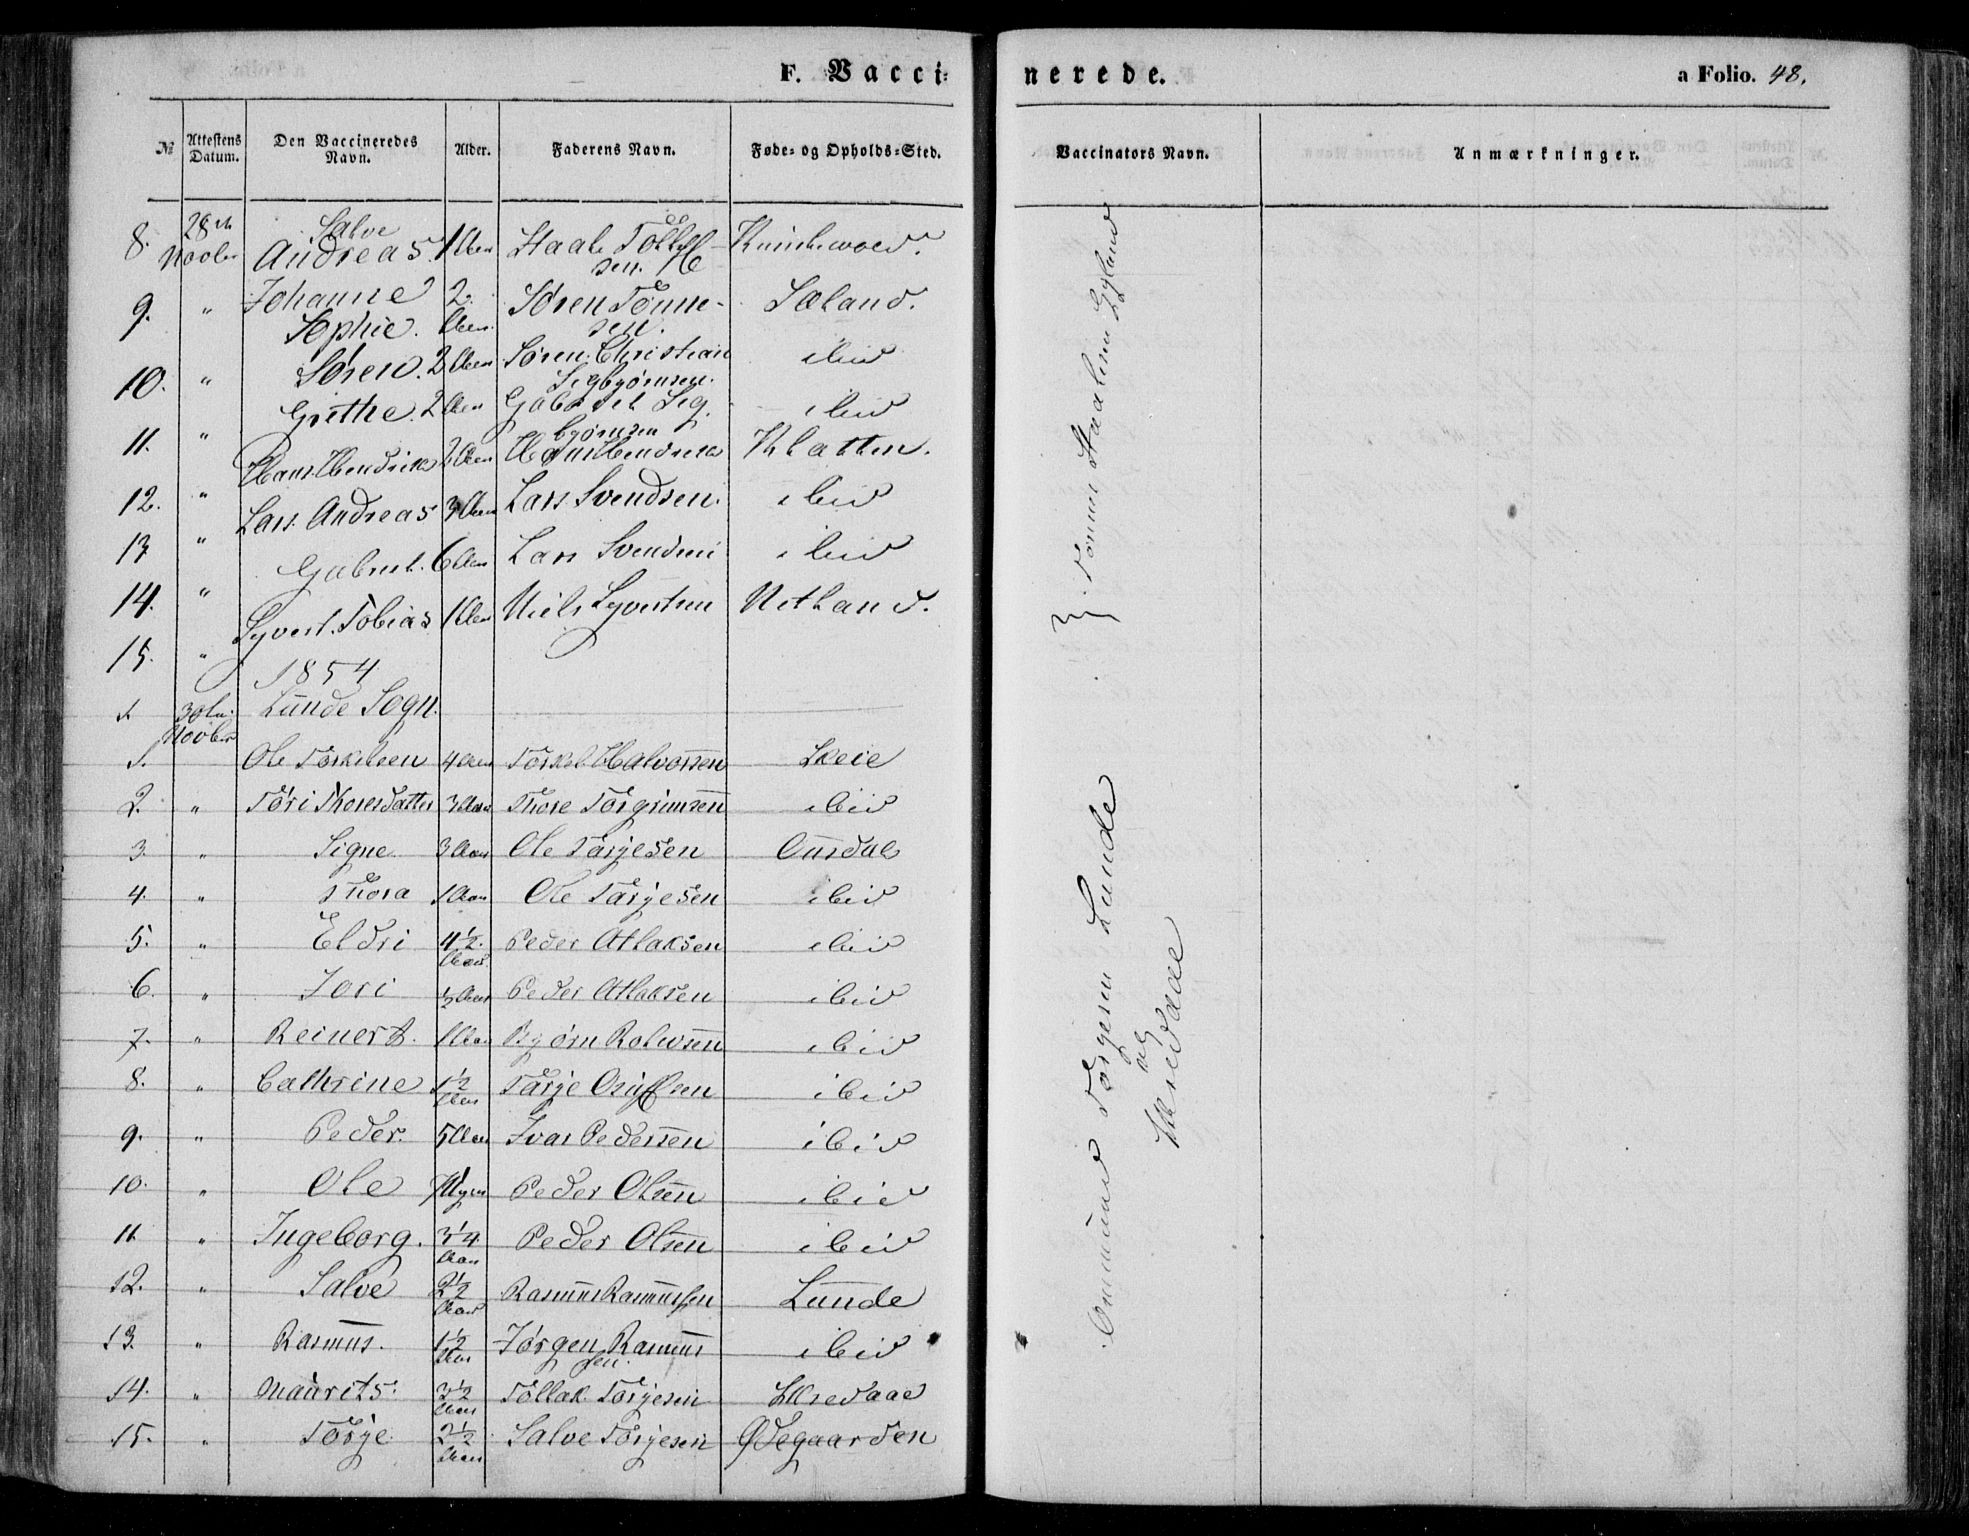 F. Vacci-
nerede.
a Folio. 48.
№
Attestens Datum.
Den Vaccineredes Navn.
Alder.
Faderens Navn.
Føde- og Opholds-Sted.
Vaccinators Navn.
Anmærkninger.
8. 28de Novbr Salve Andreas. 1 Aar Staale Tollefsen.
9. " Johanne Sophie. 2 Aar. Søren Tønnesen. Sæland.
10. " Søren. 2 Aar Søren Christian Sigbjørnsen. ibid
11. " Grethe. 2 Aar Gabriel Sigbjørnsen ibid
12. " Hans Hendrik 2 Aar Hans Hendrik Klatten.
13 " Lars Andreas 3 Aar Lars Svendsen. ibid
14. " Gabriel. 6 Aar Lars Svendsen ibid
15. " Syvert Tobias 1 Aar Niels Syvertsen Netland.
1854
30te Novber Lunde Sogn.
1. Ole Torkelsen 4 Aar Torkel Halvorsen Skeie
2. " Tori Thoresdatter 3 Aar Thore Torgrimsen ibid
3. " Signe 3 Aar Ole Tarjesen Ousdal
4. " Thora 1 Aar Ole Tarjesen ibid
5. " Eldri 4½ Aar Peder Atlaksen ibid
6. " Jori ½ Aar Peder Atlaksen ibid
7. " Reinert. 1 Aar Bjørn Rolevsen ibid
8. " Cathrine 1½ Aar Tarje ibid
9. " Peder. 5 Aar Ivar Pedersen ibid
10. " Ole Peder Olsen ibid
11 " Ingeborg. Aar Peder Olsen ibid
12. " Salve 2½ Aar Rasmus Rasmussen Lunde
13. " Rasmus. 1½ Aar Jørgen Rasmussen. ibid
14. " Maurits. 3½ Aar Tollak Torjesen Hæredaae
15. " Torje 2½ Aar Salve Torjesen Ødegaarden
Tønnes Staalesen Gyland
Ommund Torgersen Lunde
og
Hæredaae